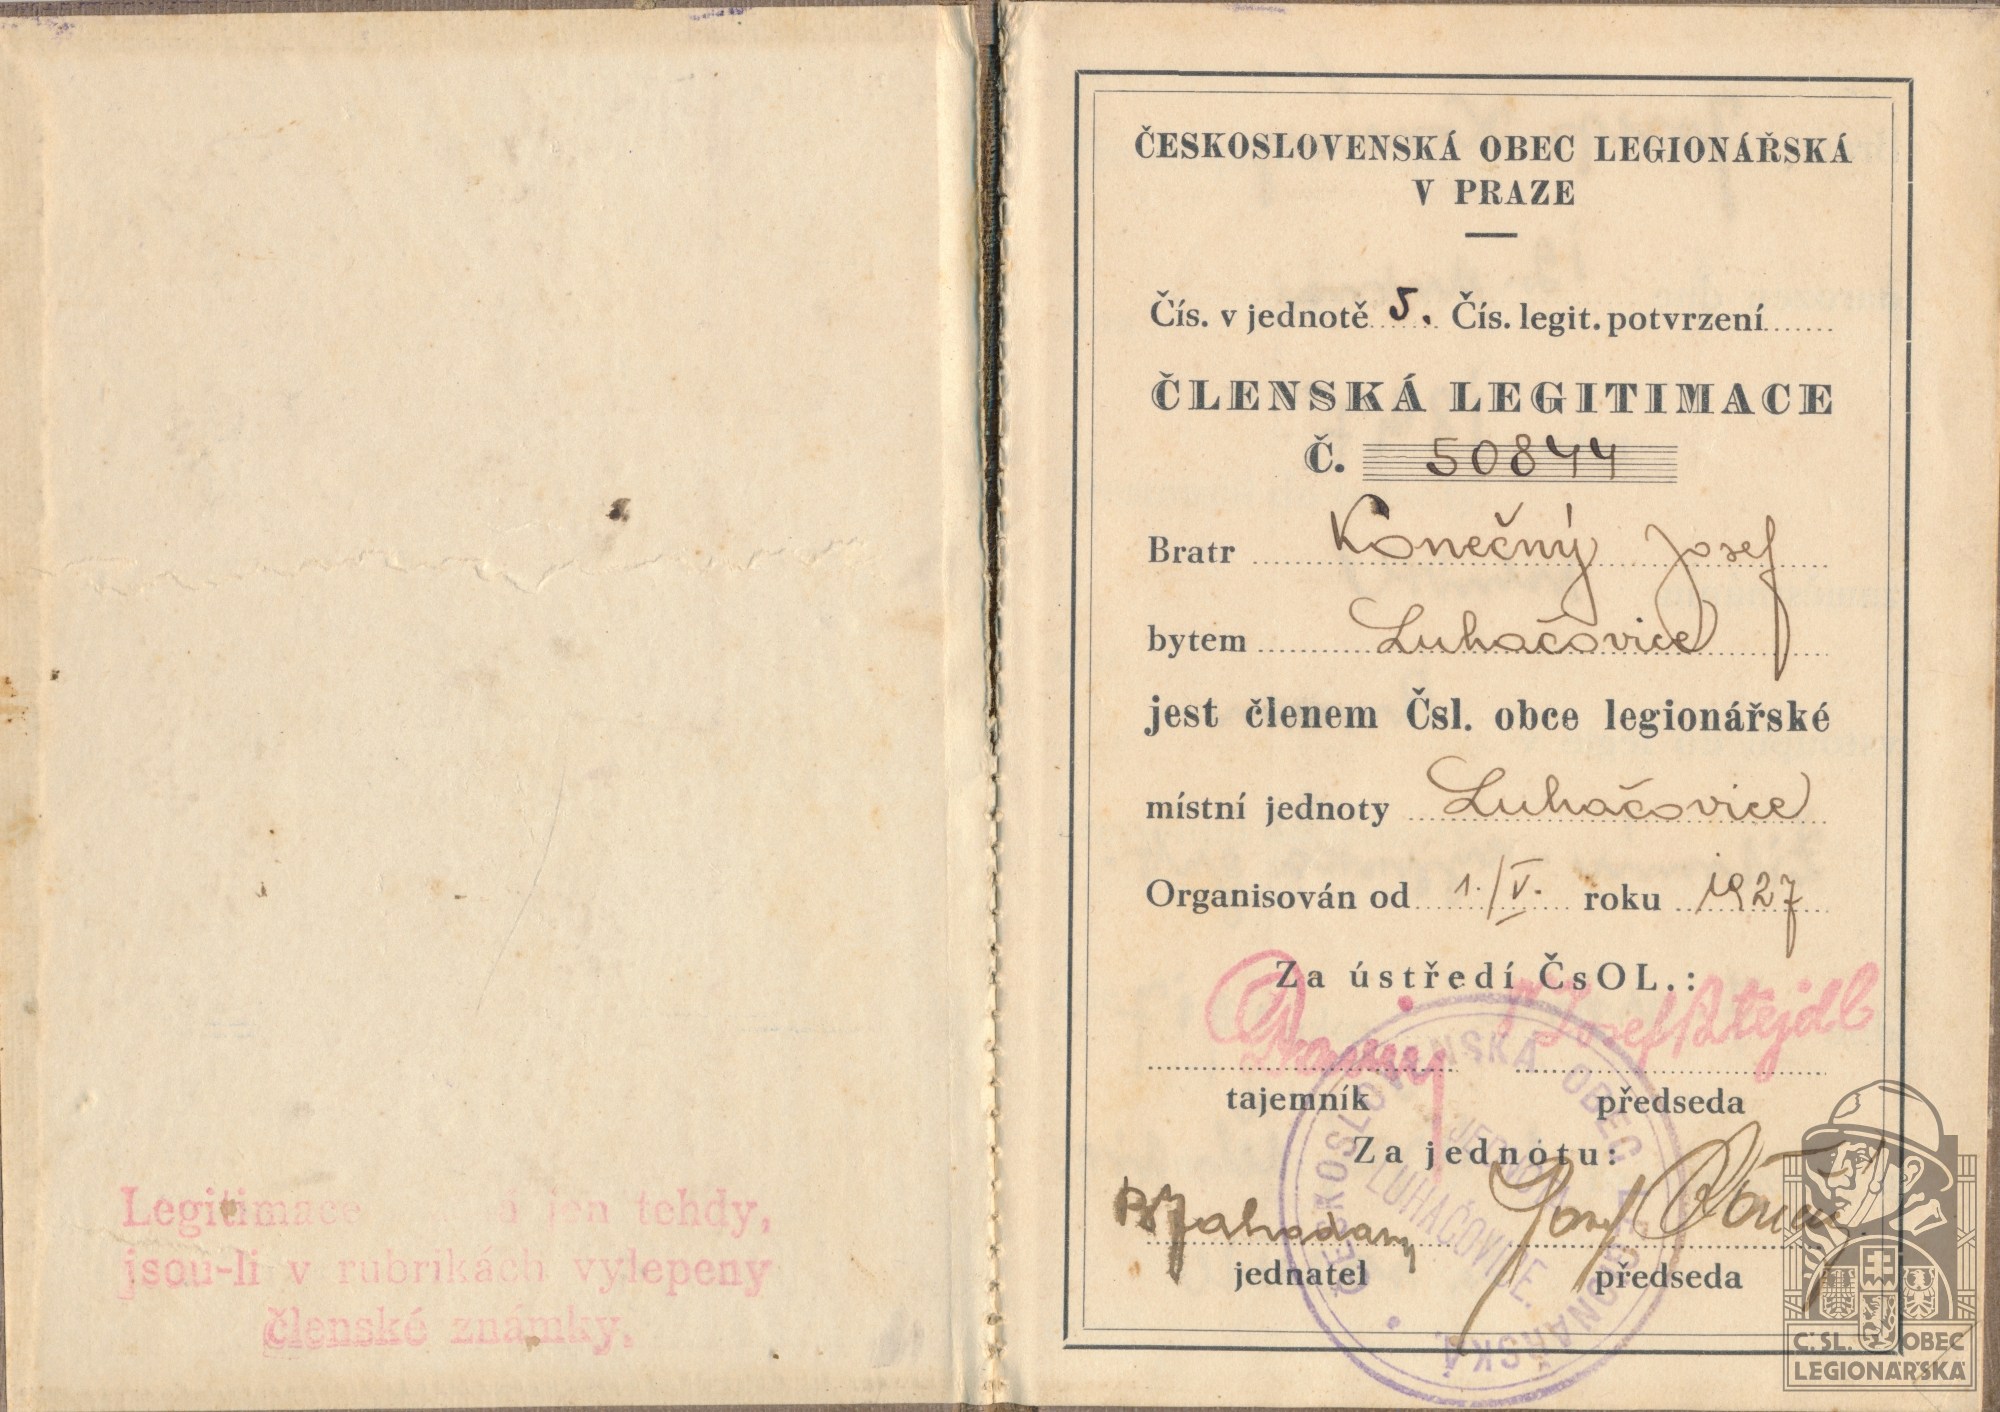 Legitimace jen tehdy,
jsou-li v rubrikách vylepeny
členské známky.
ČESKOSLOVENSKÁ OBEC LEGIONÁŘSKÁ
V PRAZE
Čís. v jednotě 5. Čís. legit. potvrzení
ČLENSKÁ LEGITIMACE
Č. 50844
Bratr Konečný Josef
bytem Luhačovice
jest členem Čsl. obce legionářské
místní jednoty Luhačovice
Organisován od 1./V. roku 1927
Za ústředí ČsOL.:
Josef
tajemník předseda
Za jednotu:
Josef
jednatel předseda
ČESKOSLOVENSKÁ OBEC LEGIONÁŘSKÁ
JEDNOTA
LUHAČOVICE.
Č. SL. OBEC
LEGIONÁŘSKÁ